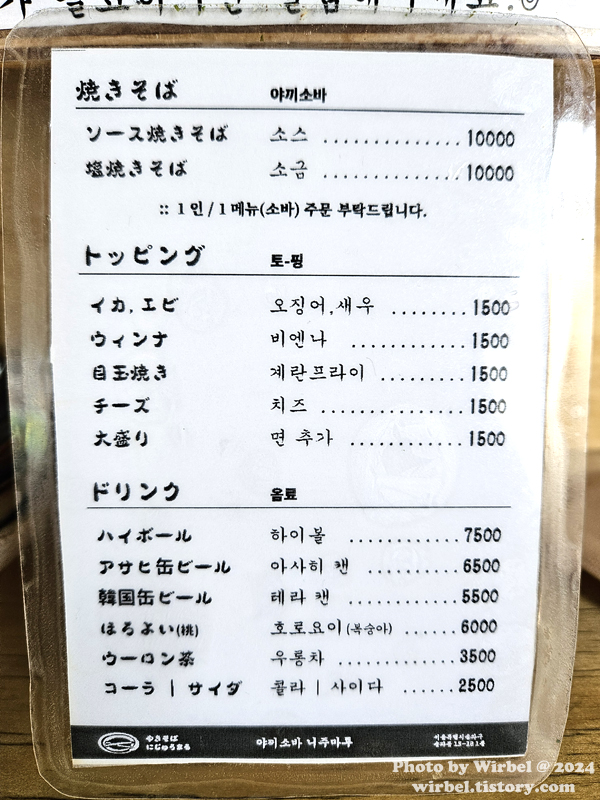 焼きそば 야끼소바
ソース焼きそば 소스 ............... 10000
塩焼きそば 소금 ............... 10000
:: 1 인 / 1 메뉴(소바) 주문 부탁드립니다.
トッピング 토-핑
イカ, エビ 오징어,새우 ........ 1500
ウィンナ 비엔나 ............ 1500
目玉焼き 계란프라이 ......... 1500
チーズ 치즈 ............... 1500
大盛り 면 추가 ............ 1500
ドリンク 음료
ハイボール 하이볼 ............ 7500
アサヒ缶ビール 아사히 캔 .......... 6500
韓国缶ビール 테라 캔 ............ 5500
ほろよい(桃) 호로요이(복숭아) ...... 6000
ウーロン茶 우롱차 ............. 3500
コーラ | サイダ 콜라 | 사이다 ...... 2500
やきそば
にじゅうまる
야끼소바 니주마루
Photo by Wirbel @ 2024
wirbel.tistory.com